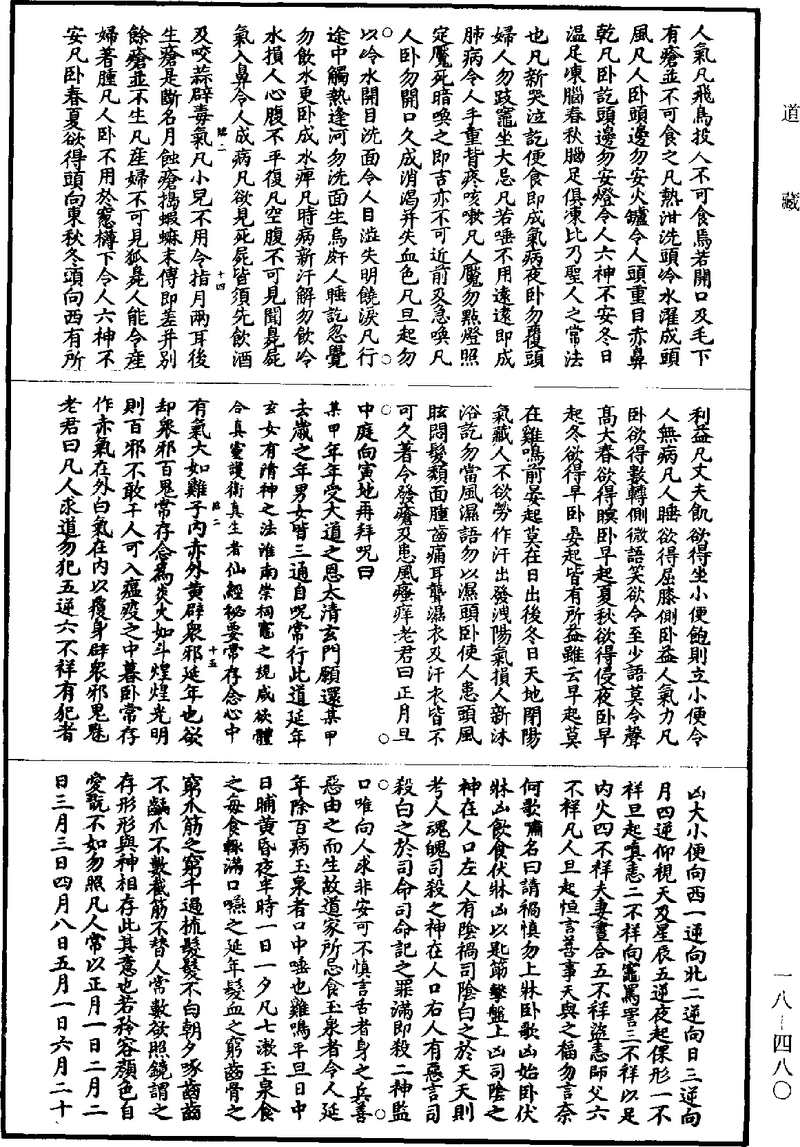 道藏
人氣凡飛鳥投人不可食焉若開口及毛下
有瘡並不可食之凡熱泔洗頭冷水濯成頭
風凡人卧頭邊勿安火鑪令人頭重目赤鼻
乾凡卧訖頭邊勿安燈令人六神不安冬日
温足凍腦春秋腦足俱凍此乃聖人之常法
也凡新哭泣訖便食即成氣病夜卧勿覆頭
婦人勿跂竈坐大忌凡若唾不用遠遠即成
肺病令人手重背疼咳嗽凡人魘勿點燈照
定魘死暗喚之即吉亦不可近前及急喚凡
人卧勿開口久成消渴并失血色凡旦起勿
以冷水開目洗面令人目澁失明饒淚凡行
途中觸熱逢河勿洗面生烏皯人睡訖忽覺
勿飲水更卧成水痺凡時病新汗解勿飲冷
水損人心腹不平復凡空腹不可見聞臭屍
氣入鼻令人成病凡欲見死屍皆須先飲酒
及咬蒜辟毒氣凡小兒不用令指月兩耳後
生瘡是斷名月蝕瘡擣蝦蟆末傅即差并别
餘瘡並不生凡産婦不可見狐臭人能令産
婦著腫凡人卧不用於窻欞下令人六神不
安凡卧春夏欲得頭向東秋冬頭向西有所
利益凡丈夫飢欲得坐小便飽則立小便令
人無病凡人睡欲得屈膝側卧益人氣力凡
卧欲得數轉側微語笑欲令至少語莫令聲
高大春欲得瞑卧早起夏秋欲得侵夜卧早
起冬欲得早卧晏起皆有所益雖云早起莫
在雞鳴前晏起莫在日出後冬日天地閉陽
氣藏人不欲勞作汗出發洩陽氣損人新沐
浴訖勿當風濕語勿以濕頭卧使人患頭風
眩悶髮頹面腫齒痛耳聾濕衣及汗衣皆不
可久著令發瘡及患風瘙痒老君曰正月旦
中庭向寅地再拜呪曰
某甲年年受大道之恩太清玄門願還某甲
去歲之年男女皆三通自呪常行此道延年
玄女有清神之法淮南崇祠竈之規咸欲體
合真靈護衛真生者仙經秘要常存念心中
有氣大如雞子内赤外黄辟衆邪延年也欲
却衆邪百鬼常存念為炎火如斗煌煌光明
則百邪不敢干人可入瘟疫之中暮卧常存
作赤氣在外白氣在内以覆身辟衆邪鬼魅
老君曰凡人求道勿犯五逆六不祥有犯者
凶大小便向西一逆向北二逆向日三逆向
月四逆仰視天及星辰五逆夜起倮形一不
祥旦起嗔恚二不祥向竈罵詈三不祥以足
内火四不祥夫妻晝合五不祥盜恚師父六
不祥凡人旦起恒言善事天與之福勿言奈
何歌嘯名曰請禍慎勿上牀卧歌凶始卧伏
牀凶飲食伏牀凶以匙筯擊盤上凶司陰之
神在人口左人有陰禍司陰白之於天天則
考人魂魄司殺之神在人口右人有惡言司
殺白之於司命司命記之罪滿即殺二神監
口唯向人求非安可不慎言舌者身之兵善
惡由之而生故道家所忌食玉泉者令人延
年除百病玉泉者口中唾也雞鳴平旦日中
日晡黄昏夜半時一日一夕凡七漱玉泉食
之每食輒滿口嚥之延年髮血之窮齒骨之
窮爪筋之窮千過梳髮髮不白朝夕啄齒齒
不齲爪不數截筋不替人常數欲照鏡謂之
存形形與神相存此其意也若矜容顔色自
愛翫不如勿照凡人常以正月一日二月二
日三月三日四月八日五月一日六月二十
臨二
十四
臨二
十五
一八–四八〇